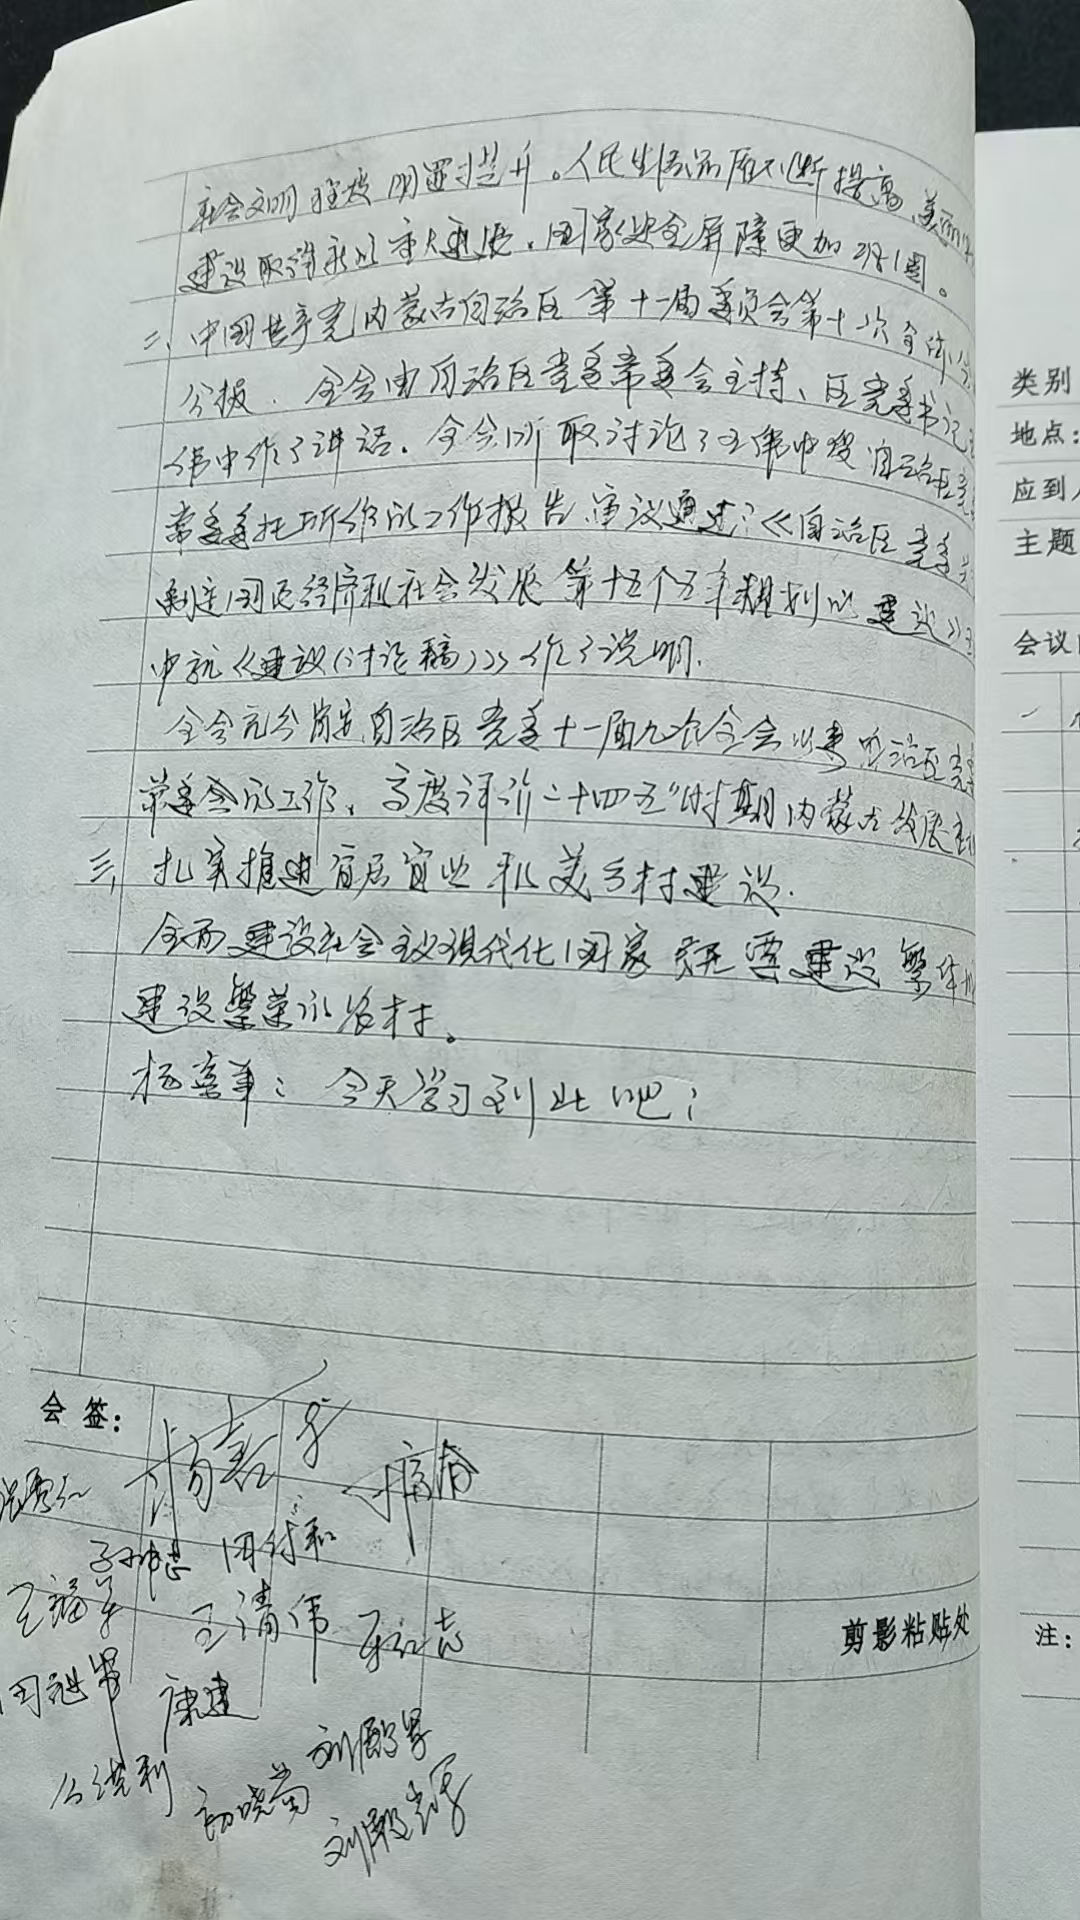 社会文明程度明显提升。人民生活品质不断提高、美丽
建设取得新的重大进展，国家安全屏障更加巩固。
二、中国共产党内蒙古自治区第十一届委员会第十次全体
公报．全会由自治区党委常委会主持、区党委书记王
伟中作了讲话．全会听取讨论了王伟中受自治区党
常委委托所作的工作报告，审议通过了《自治区党委关
制定国民经济和社会发展第十五个五年规划的建议》王
中就《建议(讨论稿)》作了说明．
全会充分肯定自治区党委十一届九次全会以来自治区党
常委会的工作．高度评价二十四五"时期内蒙古发展
三、扎实推进宜居宜业和美乡村建设．
全面建设社会主义现代化国家 要建设繁华的
建设繁荣的农村。
杨喜军：今天学习到此吧；
会签：
孙忠 周付和
王福军 王清伟
周冠军 康建
刘殿军
类别
地点：
应到人
主题
会议
剪影粘贴处
注：